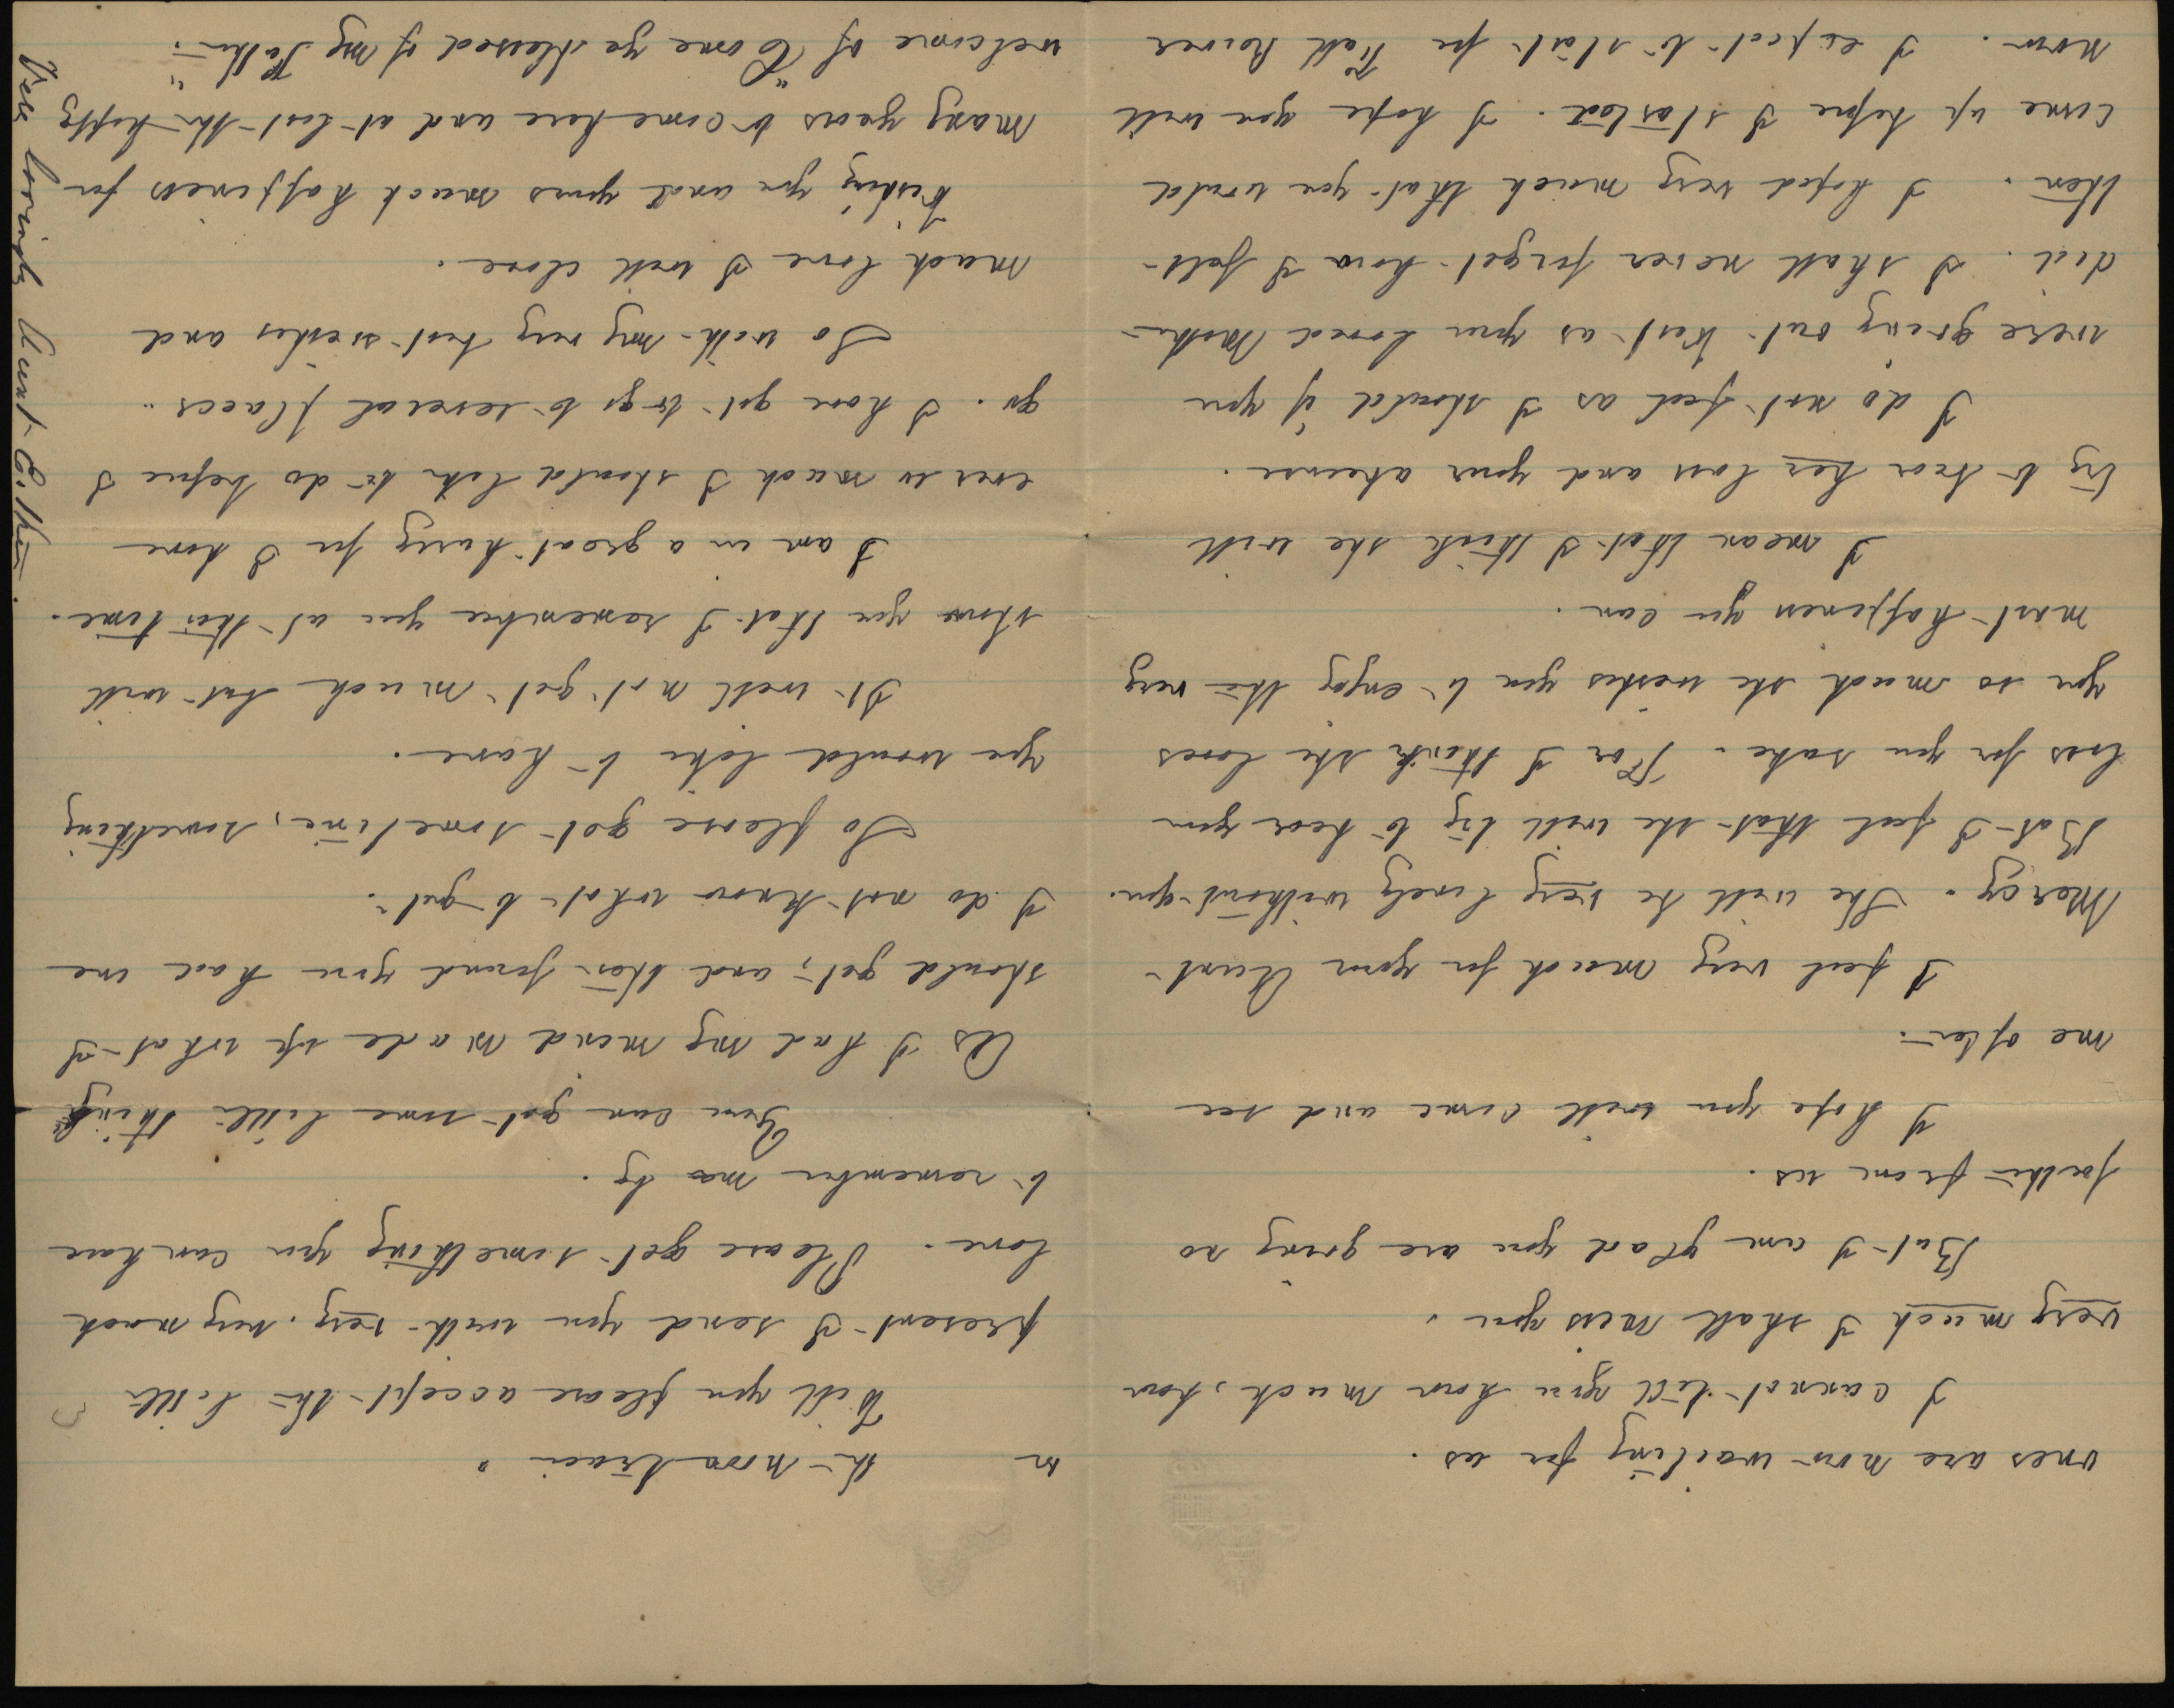 ones are now waiting for us.
I cannot tell you how much, how
very much I shall miss you.
But I am glad you are going no
farther from us.
I hope you will come and see
me often.
I feel very much for your Aunt
Mercy. She will be very lonely without you.
But I feel that she will try to bear your
loss for you sake. For I think she loves
you so much she wishes you to enjoy the very
most happiness you can.
I mean that I think she will
try to bear her loss and your absence.
I do not feel as I should if you
were going out West as your loved Mother
did. I shall never forget how I felt
then. I hoped very much that you would
come up before I started. I hope you will
now. I expect to start for Fall River
on the noon train.
Will you please accept the little
present I send you with very, very much
love. Please get something you can have
to remember me by.
You can get some little thing
As I had my mind made up what I
should get, and then found you had one
I do not know what to get.
So please get sometime, something
you would like to have.
It will not get much but will
show you that I remember you at this time.
I am in a great hurry for I have
ever so much I should like to do before I
go. I have got to go to several places.
So with my very best wishes and
much love I will close.
Wishing you and yours much happiness for
many years to come here and at last the happy
welcome of "Come ye blessed of my Father."
Very lovingly Aunt Esther.